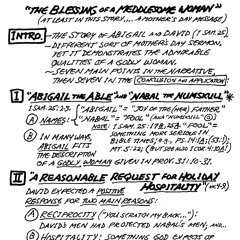 "THE BLESSING OF A MEDDLESOME WOMAN"
(AT LEAST IN THIS STORY... A MOTHER'S DAY MESSAGE)
INTRO. —THE STORY OF ABIGAIL AND DAVID (I SAM. 25)
—DIFFERENT SORT OF MOTHER'S DAY SERMON,
YET IT DEMONSTRATES THE ADMIRABLE
QUALITIES OF A GODLY WOMAN.
—SEVEN MAIN POINTS IN THE NARRATIVE,
THEN SEVEN IN THE CONCLUSION AND APPLICATION!
I "ABIGAIL THE ABLE" AND "NABAL THE NUMSKULL"
I SAM. 25:1-3 ("ABIGAIL" = "JOY OF THE (HER) FATHER"
(A) NAMES: "NABAL" = "FOOL" (AKA "NUMSKULL" ☺)
NOTE: I SAM. 25:17B, 25B "FOOL" =
(B) IN MANY WAYS, SOMETHING MORE SERIOUS IN
ABIGAIL FITS BIBLE TIMES; e.g., PS. 14:1 (53:1);
THE DESCRIPTION MT. 5:22 (BUT SEE ALSO I COR. 4:10A)!
OF A GODLY WOMAN GIVEN IN PROV. 31:10-31
II "A REASONABLE REQUEST FOR HOLIDAY
HOSPITALITY" (vv. 4-9)
DAVID EXPECTED A POSITIVE
RESPONSE FOR TWO MAIN REASONS:
(A) RECIPROCITY ("YOU SCRATCH MY BACK..."):
DAVID'S MEN HAD PROTECTED NABAL'S MEN; AND...
(B) HOSPITALITY: SOMETHING GOD EXPECTS OF